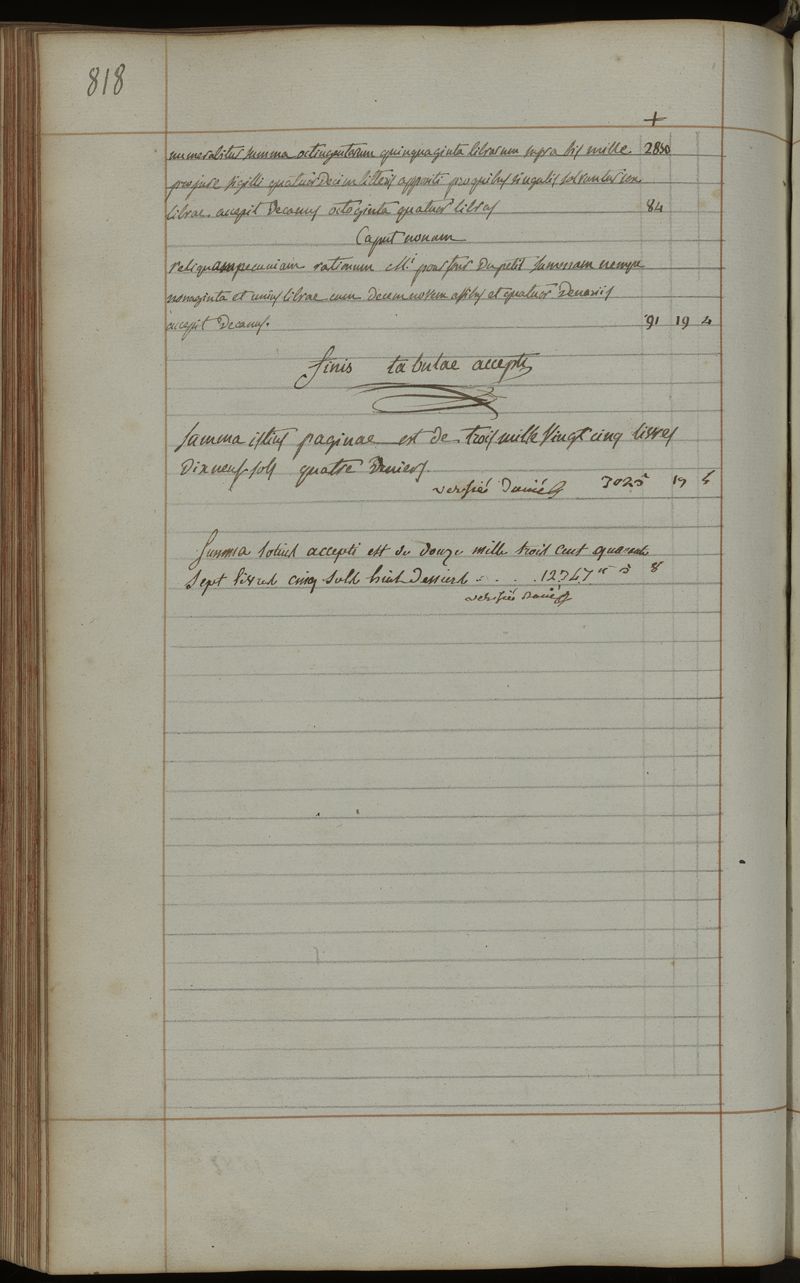 818
+
numerabitur summa octingentorum quinquaginta librarum supra bis mille 2850
pro jure sigilli quatuordecim litteris appositi pro quibus singulis solvuntur sex
librae. accepit Decanus octoginta quatuor libras 84
Caput nonum
reliquam pecuniam rationum Mi pourfour Dupetit summam nempe
nonaginta et unius librae cum decem novem assibus et quatuor Denariis
accepit Decanus. 91 19 4
finis tabulae accepti
Summa istius paginae est de trois mille Vingt cinq livres
Dix neuf sols quatre Deniers
verifiés 3025 19 4
Summa totius accepti est de douze mille trois cent quarante
sept livres cinq sols huit Deniers . . . 12347 5 8
verifiés